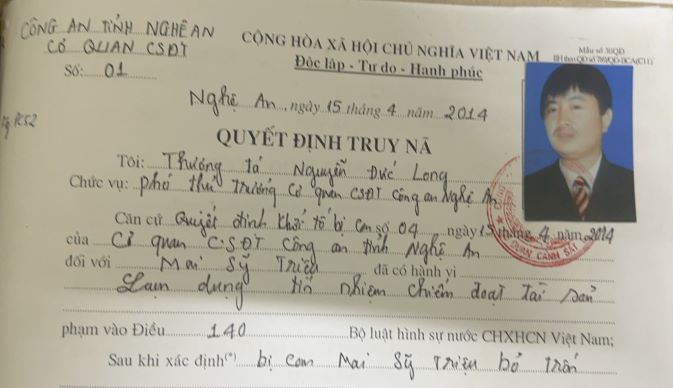 CÔNG AN TỈNH NGHỆ AN
CƠ QUAN CSĐT
Số: 01
CỘNG HÒA XÃ HỘI CHỦ NGHĨA VIỆT NAM
Độc lập - Tự do - Hạnh phúc
Mẫu số 30QĐ
PC52
Nghệ An, ngày 15 tháng 4 năm 2014
QUYẾT ĐỊNH TRUY NÃ
Tôi: Thượng tá Nguyễn Đức Long
Chức vụ: phó thủ trưởng Cơ quan CSĐT Công an Nghệ An
Căn cứ Quyết định khởi tố bị can số 04 ngày 15 tháng 4 năm 2014
của Cơ quan CSĐT Công an tỉnh Nghệ An
đối với Mai Sỹ Triệu đã có hành vi
Lạm dụng tín nhiệm chiếm đoạt tài sản
phạm vào Điều 140 Bộ luật hình sự nước CHXHCN Việt Nam;
Sau khi xác định(*) bị can Mai Sỹ Triệu bỏ trốn
QUAN CẢNH SÁT